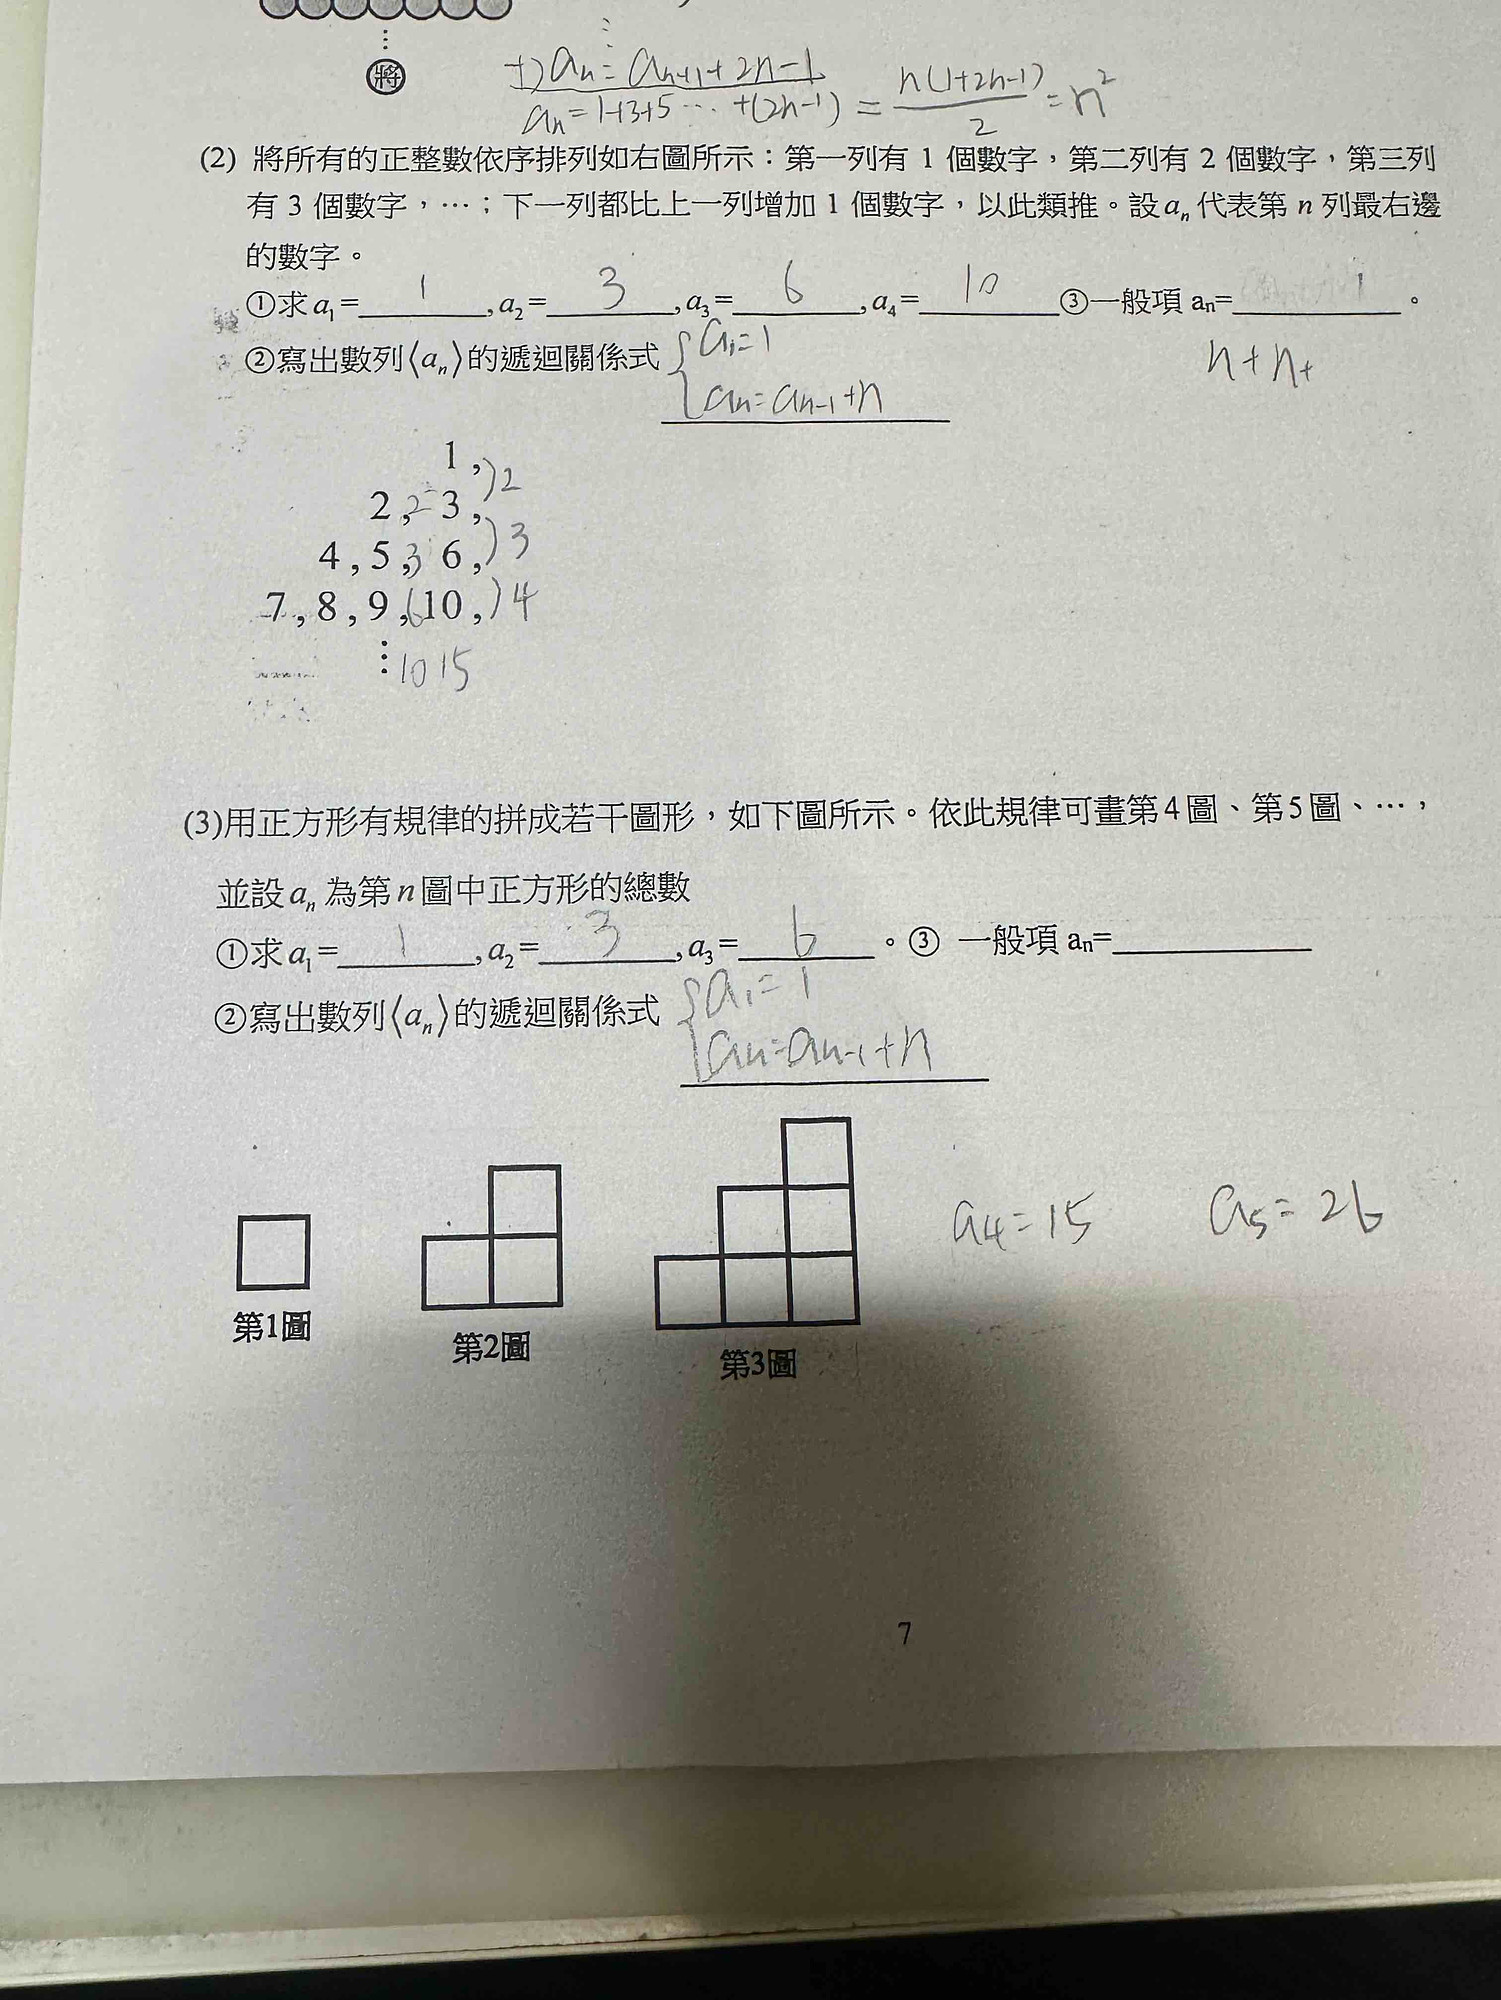 ⋮
將
⋮
+) an = an+1 + 2n-1
an = 1+3+5 ⋯ +(2n-1) = n(1+2n-1)/2 = n²
(2) 將所有的正整數依序排列如右圖所示：第一列有 1 個數字，第二列有 2 個數字，第三列
有 3 個數字，⋯；下一列都比上一列增加 1 個數字，以此類推。設 an 代表第 n 列最右邊
的數字。
①求 a1= 1 , a2= 3 , a3= 6 , a4= 10 ③一般項 an=______。
②寫出數列⟨an⟩的遞迴關係式 { a1=1
an=an-1+n
n+n+
1, )2
2, 2 3, )3
4, 5, 3 6, )4
7, 8, 9, 6 10,
⋮ 10 15
(3)用正方形有規律的拼成若干圖形，如下圖所示。依此規律可畫第4圖、第5圖、⋯，
並設 an 為第 n 圖中正方形的總數
①求 a1= 1 , a2= 3 , a3= 6 。③ 一般項 an=______
②寫出數列⟨an⟩的遞迴關係式 { a1=1
an=an-1+n
a4=15 a5=26
第1圖 第2圖 第3圖
7